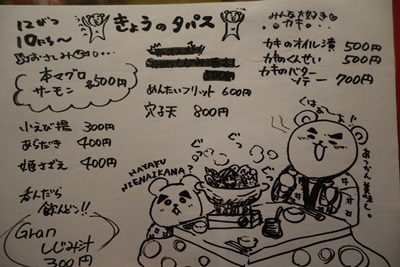 12がつ
10にち〜
きょうのタパス
おさしみ
本マグロ
サーモン
各500円
小えび揚 300円
あらだき 400円
姫さざえ 400円
呑んだら
飲んどン!!
Gran
しじみ汁
300円
めんたいフリット 600円
穴子天 800円
みんな大好き
カキ
カキのオイル漬 500円
カキのくんせい 500円
カキのバター
ソテー 700円
HAYAKU
NIENAIKANA?
ぐっ
ぐっ
ぐっ
あっかん美味し。